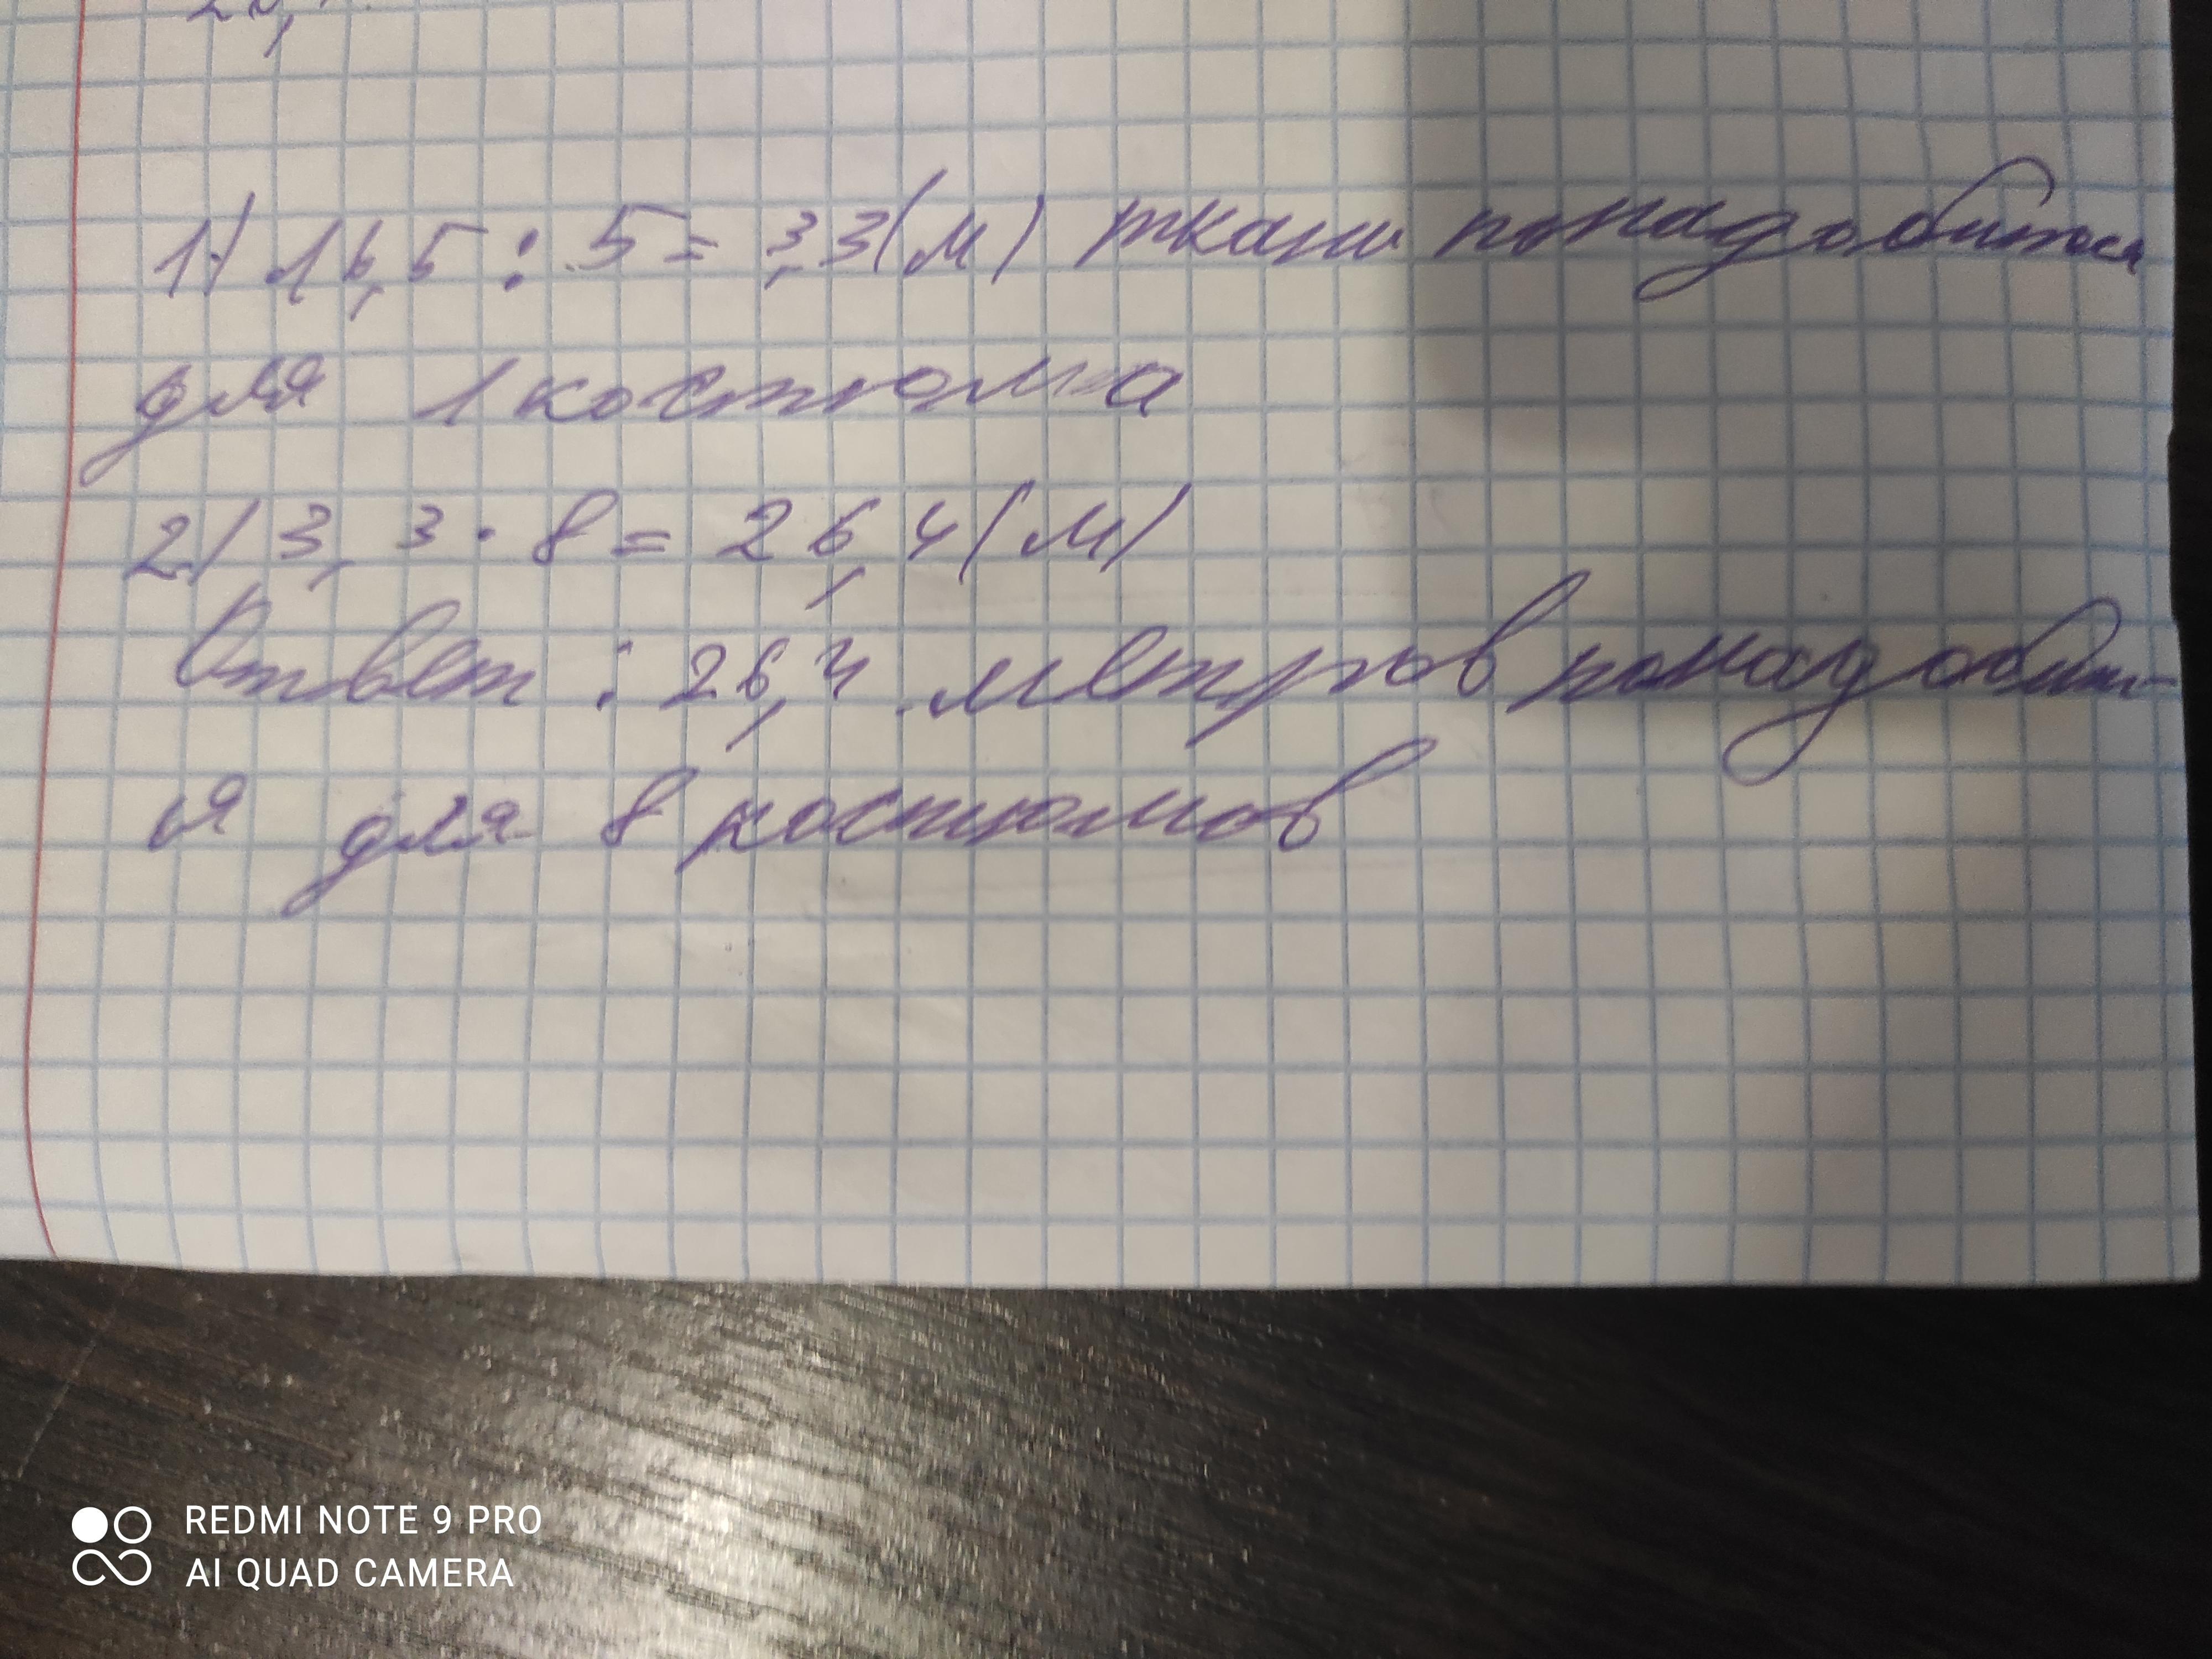 1) 16,5 : 5 = 3,3 (м) ткани понадобится
для 1 костюма
2) 3,3 · 8 = 26,4 (м)
Ответ: 26,4 метров понадобит-
ся для 8 костюмов
REDMI NOTE 9 PRO
AI QUAD CAMERA